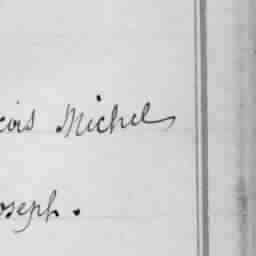 cois Michel
oseph.